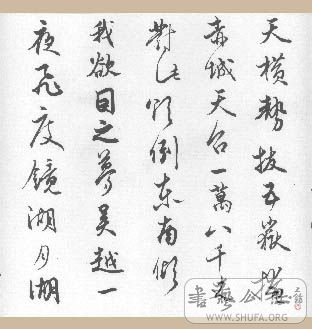 天橫勢拔五嶽掩
赤城天台一萬八千丈
對此欲倒東南傾
我欲因之夢吳越一
夜飛度鏡湖月湖
WWW.SHUFA.ORG